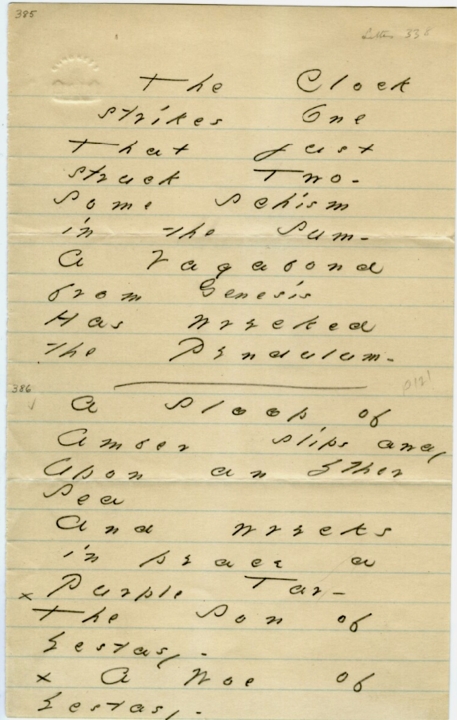 385
Letters
The Clock
strikes One
That just
struck Two -
Some Schism
in the Sum -
A Vagabond
from Genesis
Has wrecked
the Pendulum -
386
A Sloop of
Amber slips away
Upon an Ether
Sea
And wrecks
in peace a
x Purple Tar -
The Son of
Ecstasy -
x A Woe of
Ecstasy -